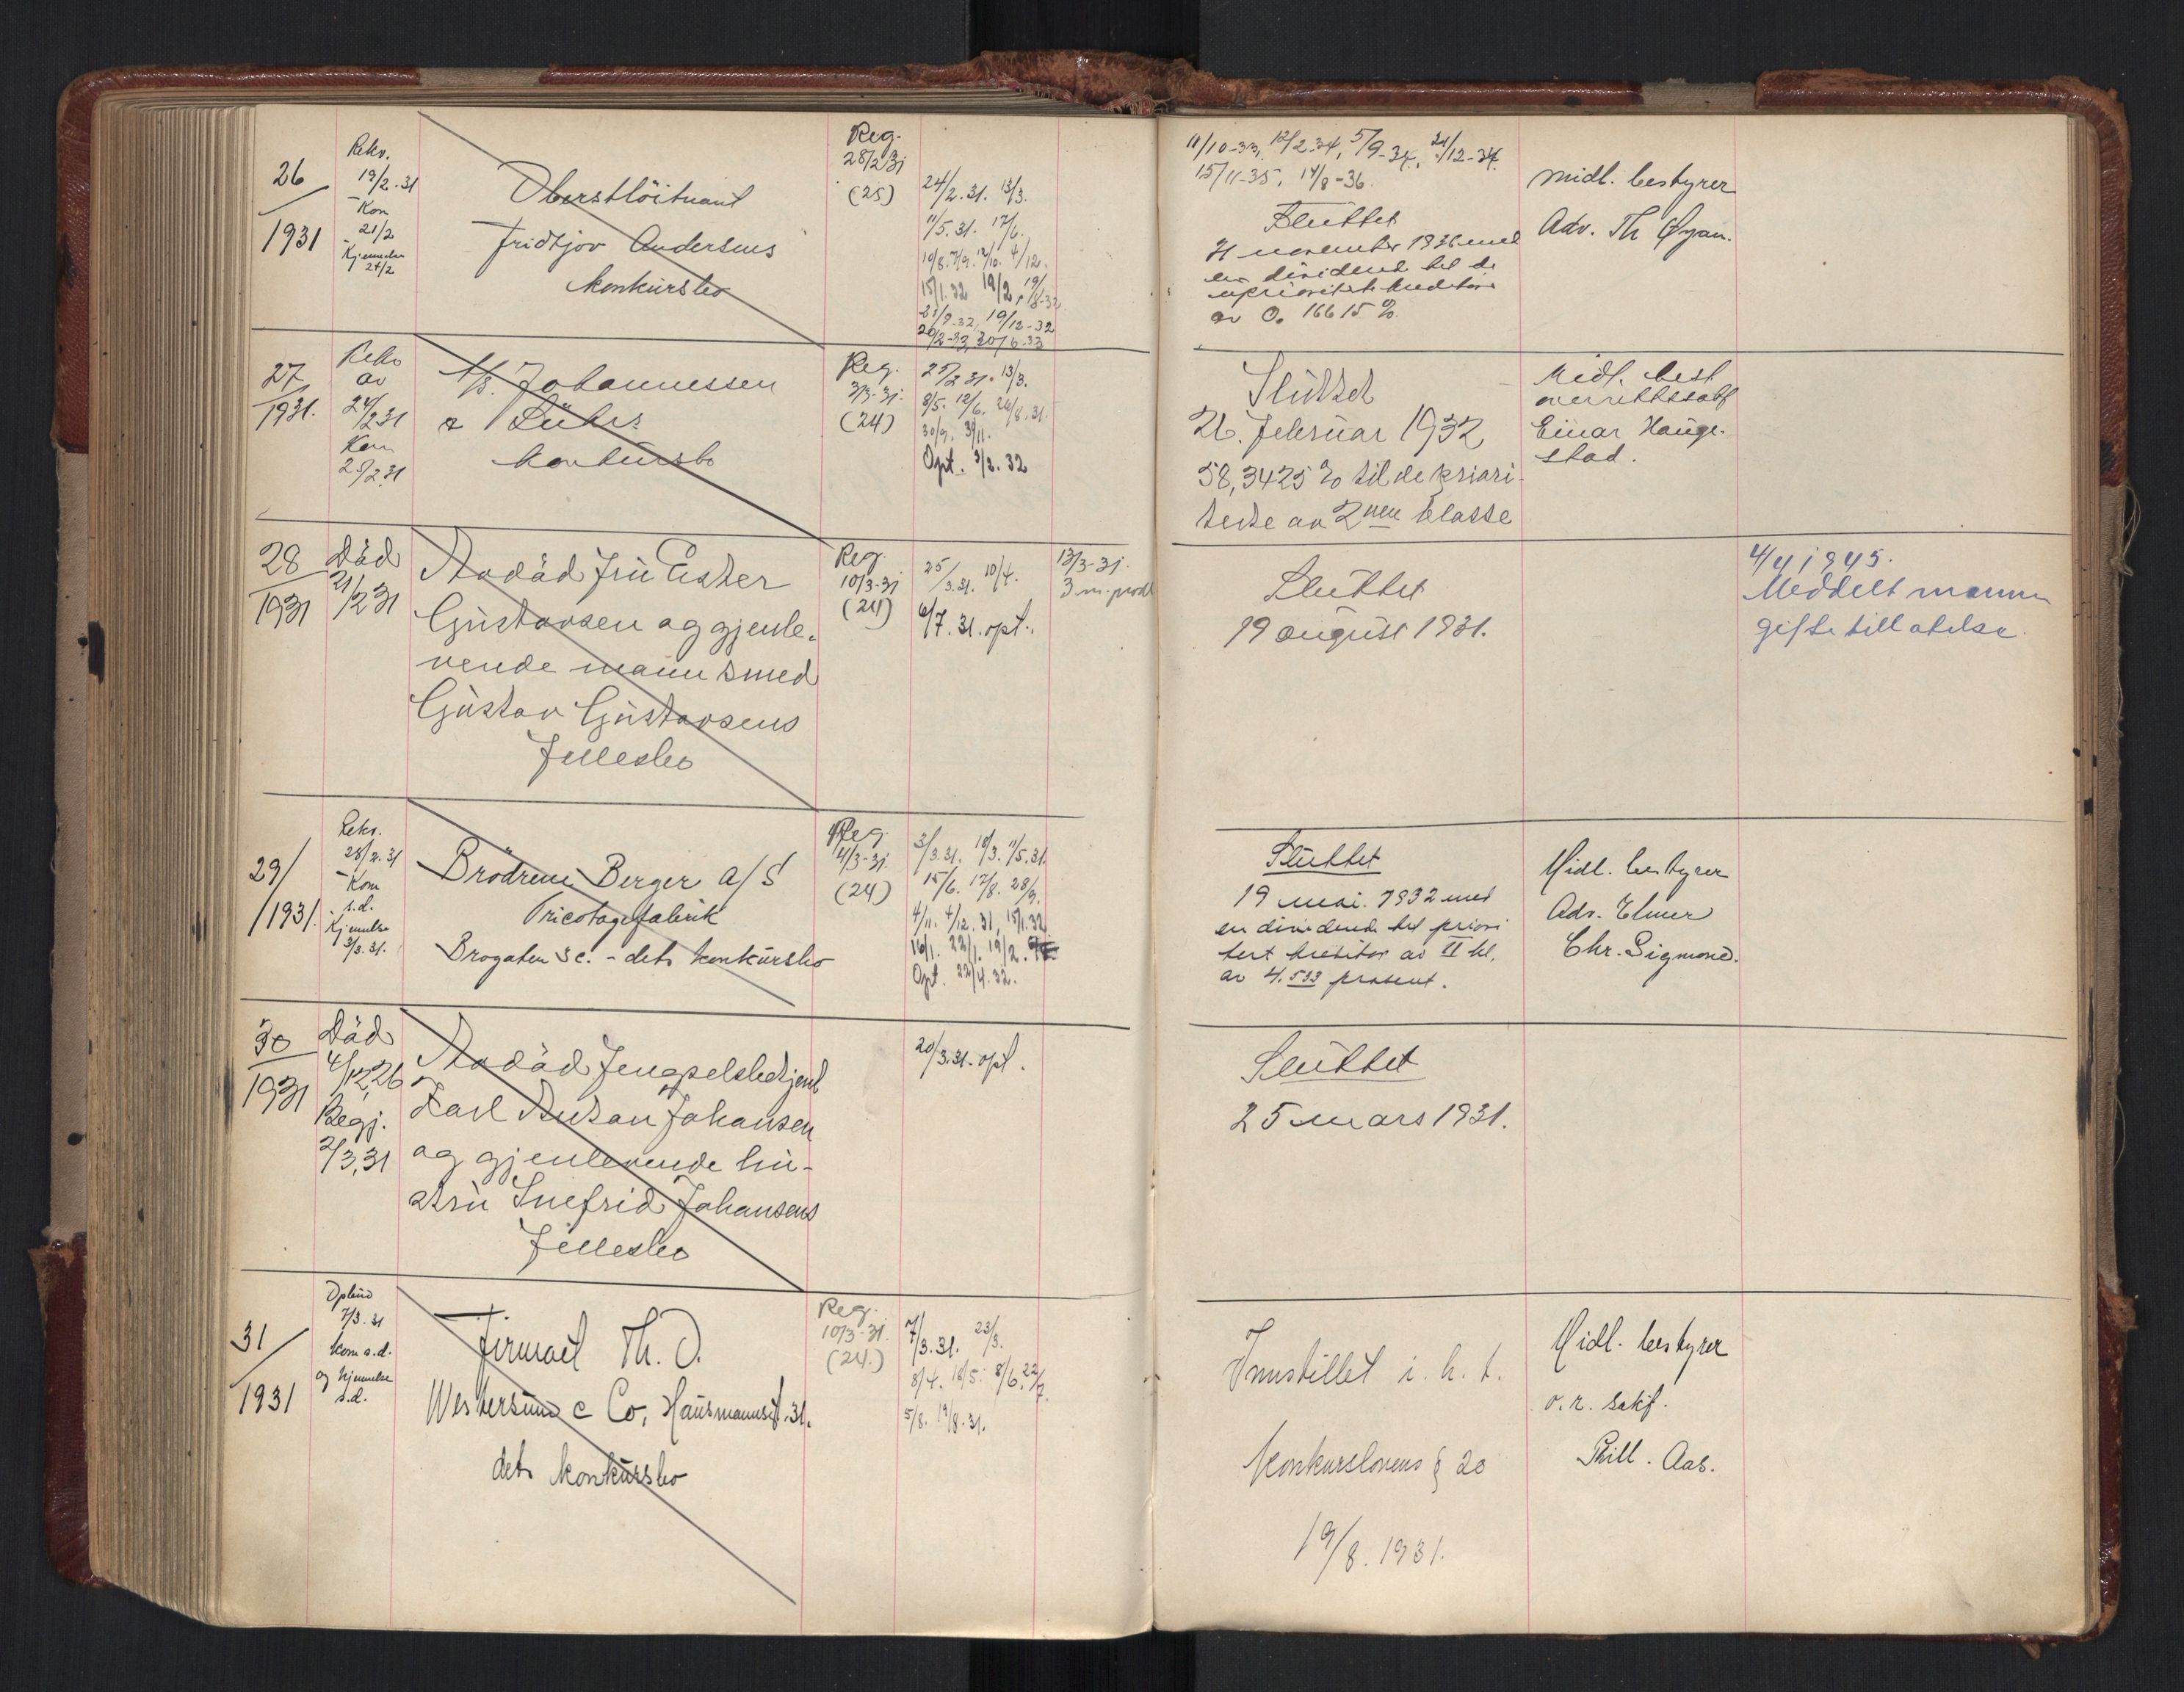 26
1931
Rekv.
19/2.31
Kom
21/2
Kjennelse
24/2
Oberstlöitnant
Fridtjov Andersens
konkursbo
Reg.
28/2 31
(25)
24/2.31. 13/3.
11/5.31. 17/6.
15/1.32 19/2,
19/12-32
20/2-33, 20/6-33
11/10-33, 12/2.34, 5/9-34, 21/12-34.
15/11-35, 14/8-36.
Sluttet
november 1936 med
en dividende til de
uprioriterte kreditorer
av 0. 16615 %.
Midl. bestyrer
Adv. Th Øyan.
27
1931.
Rekv
av
24/2 31
Kom
25/2 31
A/S. Johannessen
& Lührs
konkursbo
Reg.
3/3-31.
(24)
25/2 31. 13/3.
8/5. 12/6. 26/8.31.
30/9. 3/11.
Opt. 3/2.32
Sluttet
26. februar 1932
58,3425 % til de priori-
terte av 2nen klasse
Midl. best
overrettssakf
Einar Hauge-
stad.
28
1931
Död
21/2 31
Avdöd fru Ester
Gustavsen og gjenle-
vende mann smed
Gustav Gustavsens
fellesbo
Reg.
10/3-31
(24)
25/3.31. 10/4.
6/7.31. opt.
13/3-31.
3 m. prokl
Sluttet
19 august 1931.
4/4 1945.
Meddelt mannen
giftetillatelse.
29/
/1931.
Rekv.
28/2.31
Kom
s.d.
Kjennelse
3/3.31.
Brödrene Berger A/S
Tricotagefabrik
Brogaten 3 c. - dets konkursbo
Reg.
4/3-31
(24)
3/3.31. 10/3. 11/5.31.
15/6. 17/8. 28/9.
4/11. 4/12.31, 15/1.32.
16/1. 22/1. 19/2.
Opt. 22/4.32.
Sluttet
19 mai. 1932 med
en dividende til priori
tert kreditor av II kl.
av 4.533 prosent.
Midl. bestyrer
Adv. Elmer
Chr. Sigmond.
30
1931
Död
4/12,26
Begj.
2/3,31
Avdöd fengselsbetjent
Karl Anton Johansen
og gjenlevende hu-
stru Snefrid Johansens
fellesbo
20/3.31-opt.
Sluttet
25 mars 1931.
31
1931
Opbud
7/3.31
kom s.d.
og kjennelse
s.d.
Firmaet Th. O.
Westersund & Co, Hausmannsgt. 31.
dets konkursbo
Reg.
10/3-31.
(24.)
7/3.31. 23/3.
8/4. 18/5. 8/6. 22/7.
5/8. 19/8.31.
Innstillet i. h. t.
konkurslovens § 20
19/8. 1931.
Midl. bestyrer
o.r. sakf.
Phill. Aas.